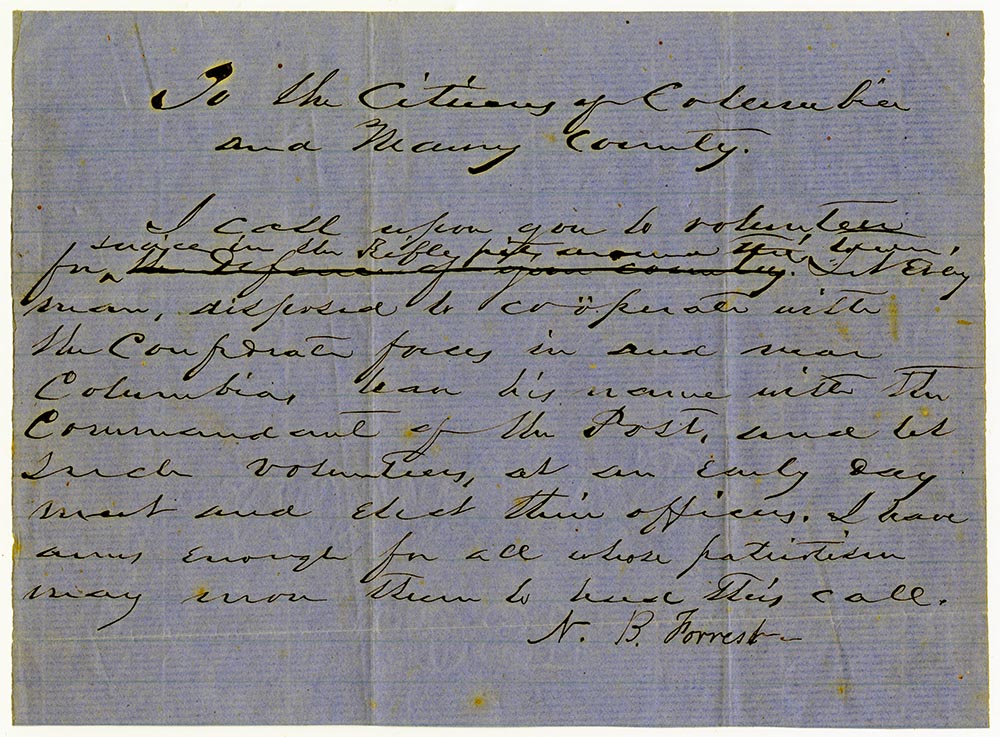 To the Citizens of Columbia
and Maury County.
I call upon you to volunteer
service in the Rifle pits around this town,
for the defence of your country. Let Every
man, disposed to coöperate with
the Confederate forces in and near
Columbia, leave his name with the
Commandant of the Post, and let
such volunteers, at an Early Day
meet and elect their officers. I have
arms enough for all whose patriotism
may move them to heed this call.
N. B. Forrest